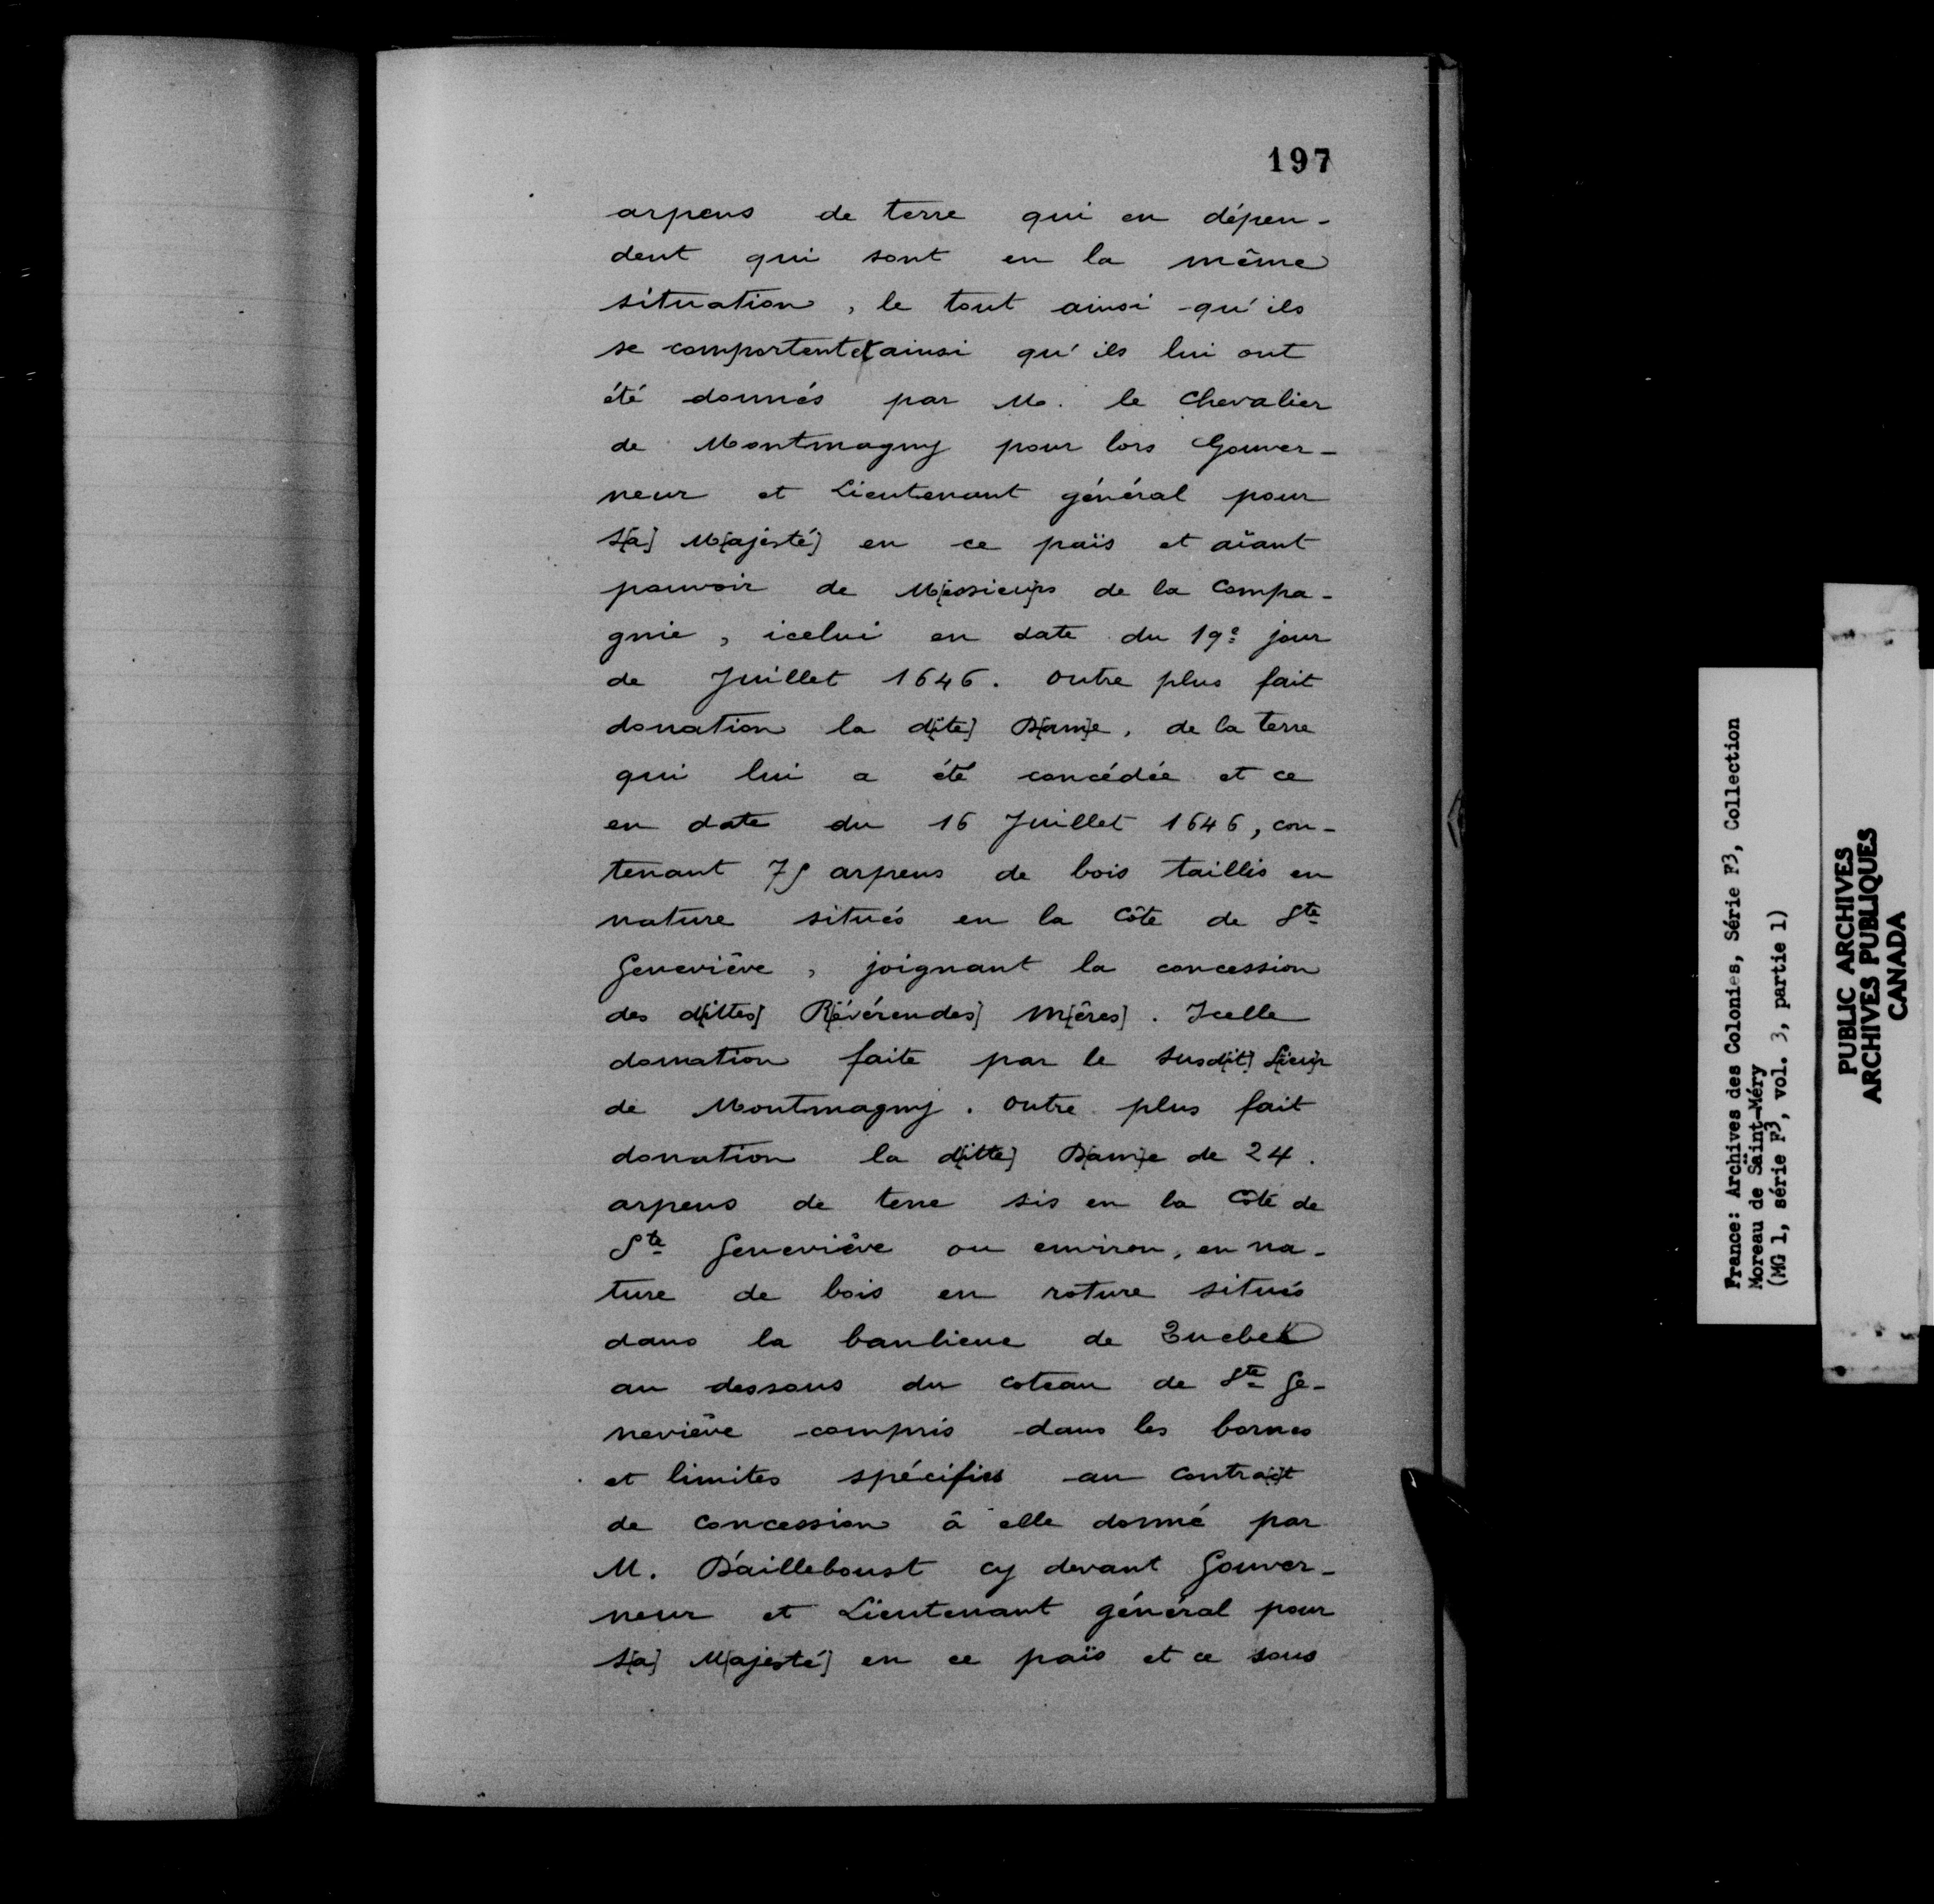 197
arpens de terre qui en dépen-
dent qui sont en la même
situation, le tout ainsi qu'ils
se comportent et ainsi qu'ils lui ont
été donnés par M. le Chevalier
de Montmagny pour lors Gouver-
neur et Lieutenant général pour
S[a] M[ajesté] en ce païs et aïant
pouvoir de M[essieu]rs de la Compa-
gnie, icelui en date du 19e jour
de Juillet 1646. Outre plus fait
donation la d[ite] D[am]e, de la terre
qui lui a été concédée et ce
en date du 16 Juillet 1646, con-
tenant 75 arpens de bois taillis en
nature situés en la Côte de Ste
Geneviêve, joignant la concession
des d[ittes] R[évérendes] M[êres]. Icelle
donation faite par le susd[it] S[ieu]r
de Montmagny. Outre plus fait
donation la d[itte] D[am]e de 24.
arpens de terre sis en la Côte de
Ste Geneviêve ou environ, en na-
ture de bois en roture situés
dans la banlieue de Quebek
au dessous du coteau de Ste Ge-
neviêve compris dans les bornes
et limites spécifiés au Contra[c]t
de Concession â elle donné par
M. D'ailleboust cy devant Gouver-
neur et Lieutenant général pour
S[a] M[ajesté] en ce païs et ce sous
France: Archives des Colonies, Série F3, Collection
Moreau de Säint-Méry
(MG 1, série F3, vol. 3, partie 1)
PUBLIC ARCHIVES
ARCHIVES PUBLIQUES
CANADA